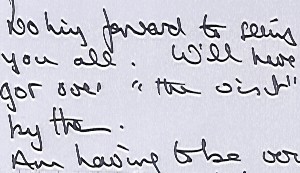 Looking forward to seeing
you all. Will have
got over "the visit"
by then.
Am having to be